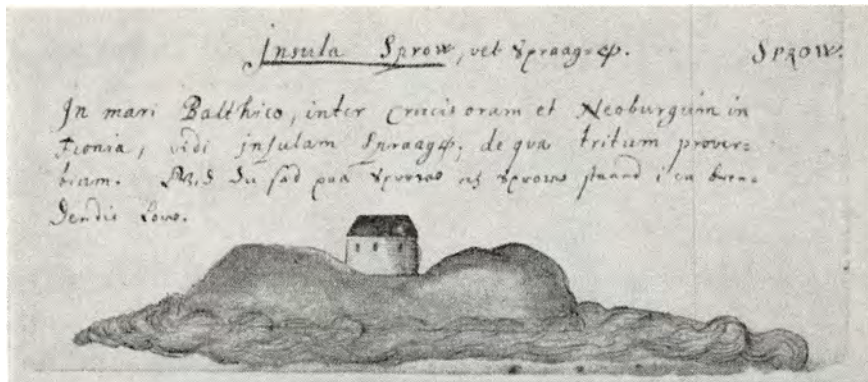 Insula Sprow, vel Spraagøe. SPROW.
In mari Balthico, inter Crucis oram et Neoburgum in
Fionia, vidi insulam Spraagøe, de qva tritum prover=
bium. Du sad paa Sprowø stand i en bren=
dendis Lowe.